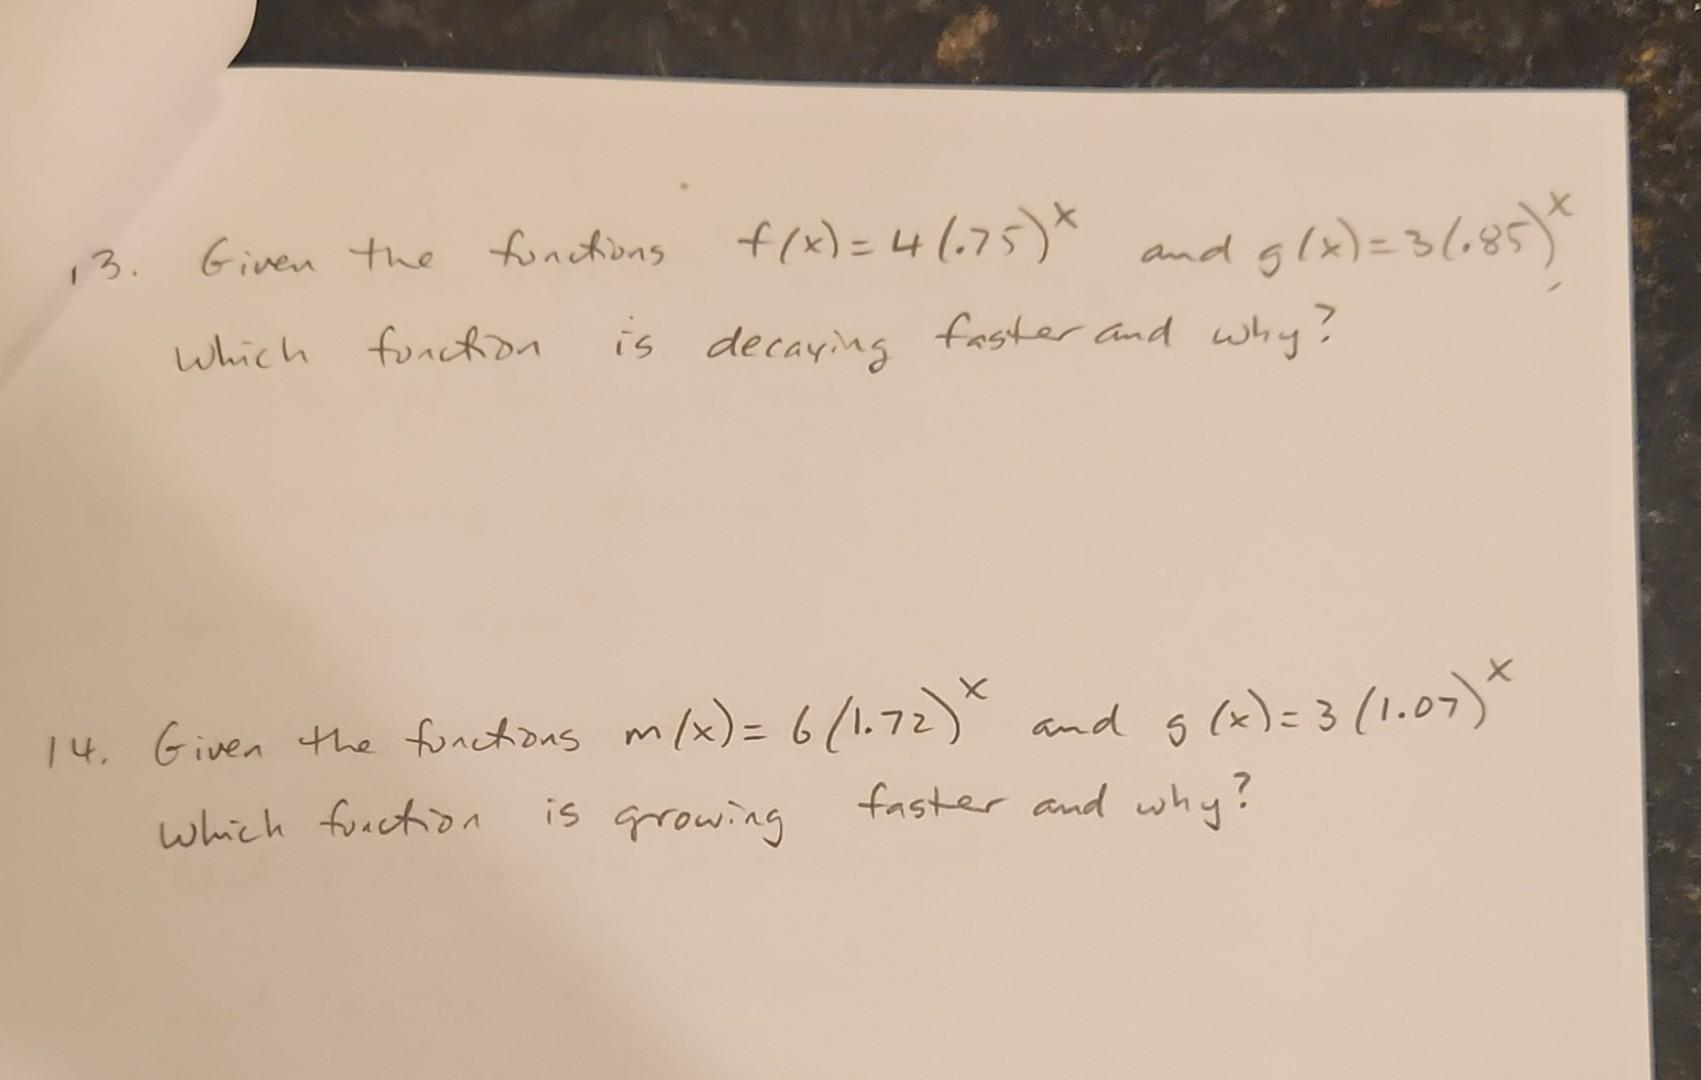 13. Given the functions f(x)=4(.75)^x and g(x)=3(.85)^x
Which function is decaying faster and why?
14. Given the functions m(x)=6(1.72)^x and g(x)=3(1.07)^x
Which function is growing faster and why?